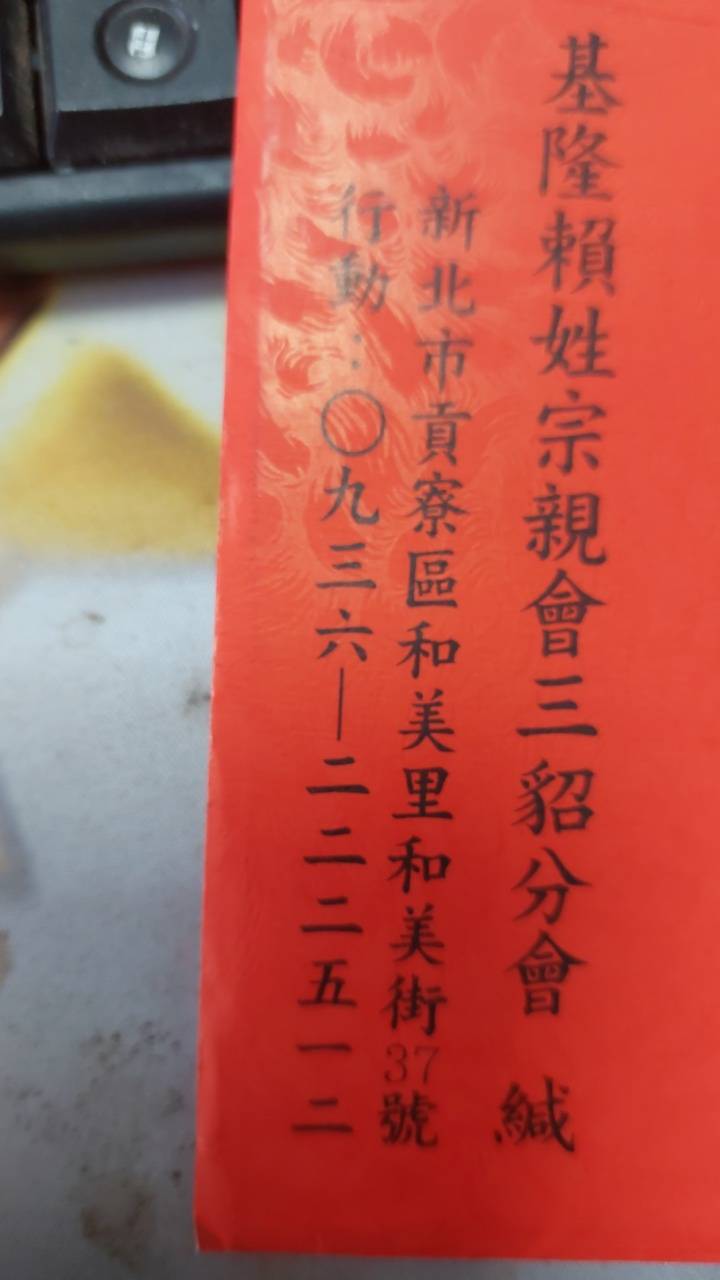 基隆賴姓宗親會三貂分會 緘
新北市貢寮區和美里和美街37號
行動：〇九三六—二二二五一二